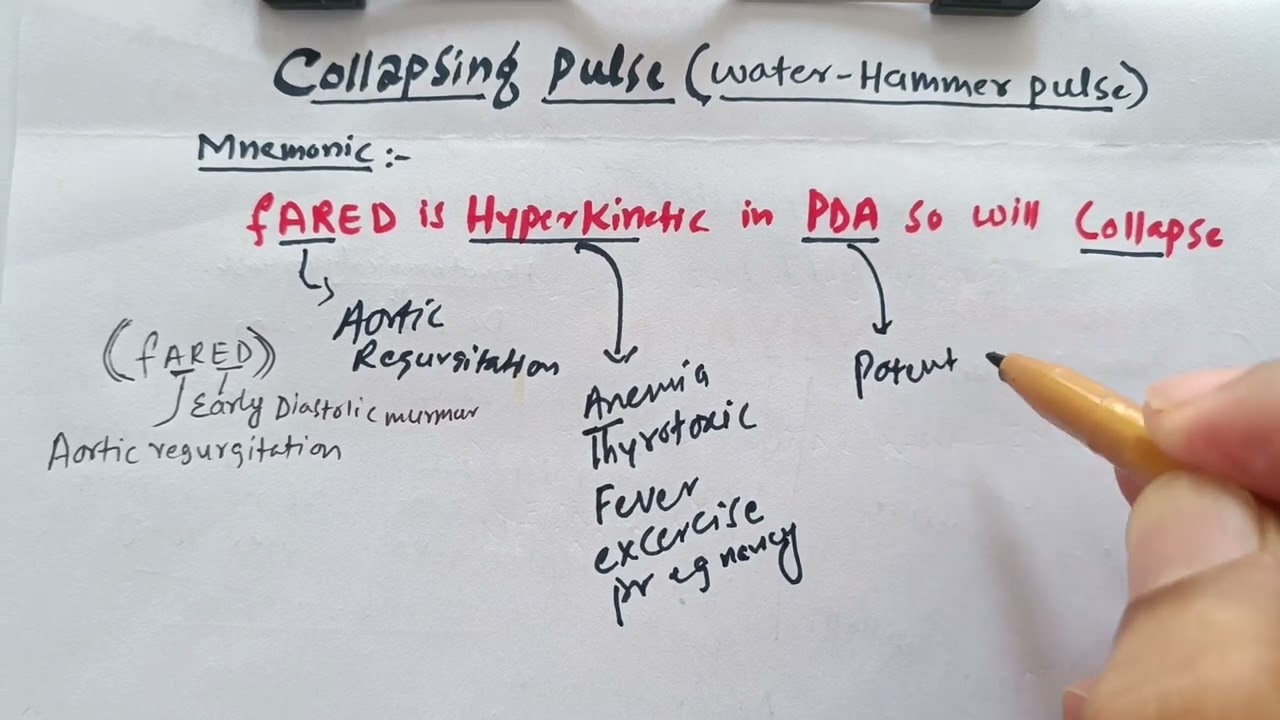 Collapsing Pulse (water-Hammer pulse)
Mnemonic :-
fARED is HyperKinetic in PDA so will Collapse
Aortic
Regurgitation
(fARED)
Early Diastolic murmur
Aortic regurgitation
Anemia
Thyrotoxic
Fever
excercise
pregnancy
Patent